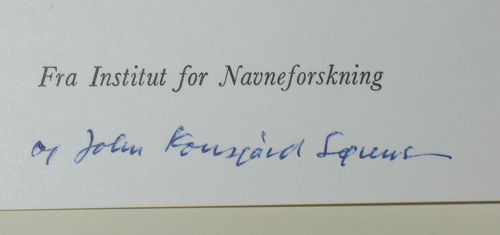 Fra Institut for Navneforskning
og John Kousgård Sørensen